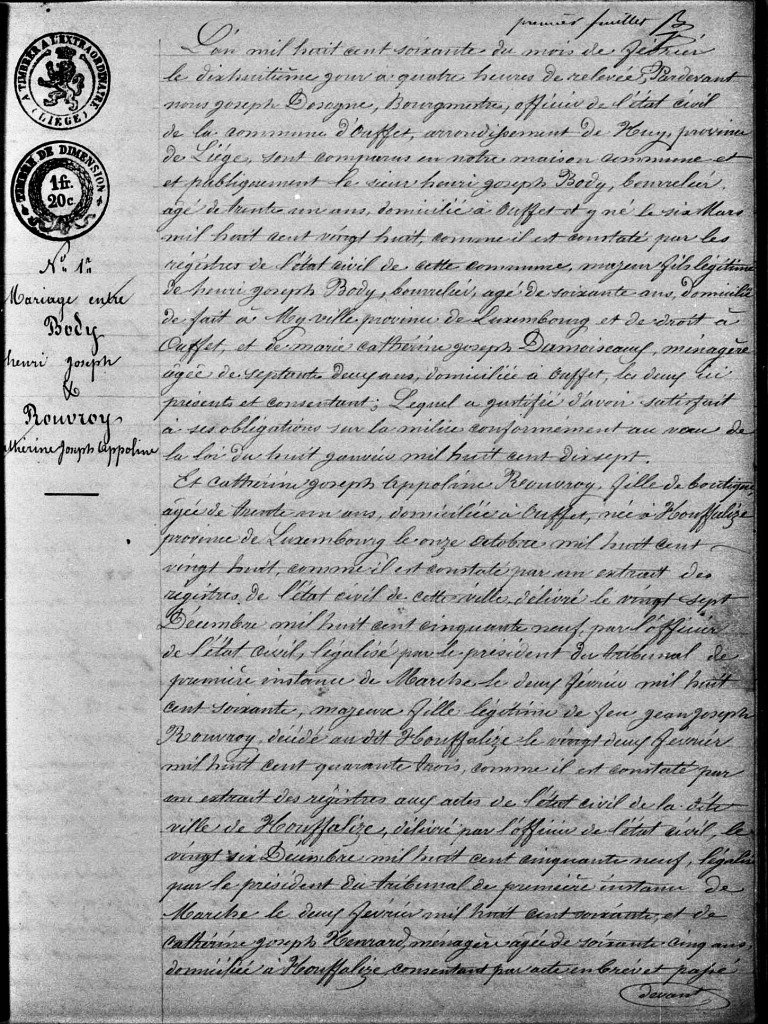 premier feuillet
A TIMBRER A L'EXTRAORDINAIRE
(LIÈGE)
TIMBRE DE DIMENSION
1 fr.
20 c.
N° 1er
Mariage entre
Body
henri Joseph
&
Rouvroy
Catherine Joseph Appoline
L'an mil huit cent soixante du mois de février
le dixhuitième jour à quatre heures de relevée, Pardevant
nous joseph Dosogne, Bourgmestre, officier de l'état civil
de la commune d'Ouffet, arrondissement de Huy, province
de Liége, sont comparus en notre maison commune et
et publiquement le sieur henri joseph Body, bourrelier,
agé de trente un ans, domicilié à Ouffet et y né le six Mars
mil huit cent vingt huit, comme il est constaté par les
régistres de l'état civil de cette commune, majeur fils légitime
de henri joseph Body, bourrelier, agé de soixante ans, domicilié
de fait à My ville province de Luxembourg et de droit à
Ouffet, et de marie catherine joseph Damoiseaux, ménagère
âgée de septante deux ans, domiciliée à Ouffet, les deux ici
présents et consentant; Lequel a justifié d'avoir satisfait
à ses obligations sur la milice conformement au vœu de
la loi du huit janvier mil huit cent dix sept.
Et catherine joseph Appoline Rouvroy, fille de boutique,
âgée de trente un ans, domiciliée à Ouffet, née à Houffalize
province de Luxembourg le onze octobre mil huit cent
vingt huit, comme il est constaté par un extrait des
régistres de l'état civil de cette ville, délivré le vingt sept
Décembre mil huit cent cinquante neuf, par l'officier
de l'état civil, légalisé par le président du tribunal de
première instance de Marche le deux février mil huit
cent soixante, majeure fille légitime de feu jean joseph
Rouvroy, décédé au dit Houffalize le vingt deux février
mil huit cent quarante trois, comme il est constaté par
un extrait des régistres aux actes de l'état civil de la dite
ville de Houffalize, délivré par l'officier de l'état civil, le
vingt six Décembre mil huit cent cinquante neuf, légalisé
par le président du tribunal de première instance de
Marche le deux février mil huit cent soixante, et de
catherine joseph Henrard, ménagère agée de soixante cinq ans,
domiciliée à Houffalize, consentant par acte en brévet passé
devant